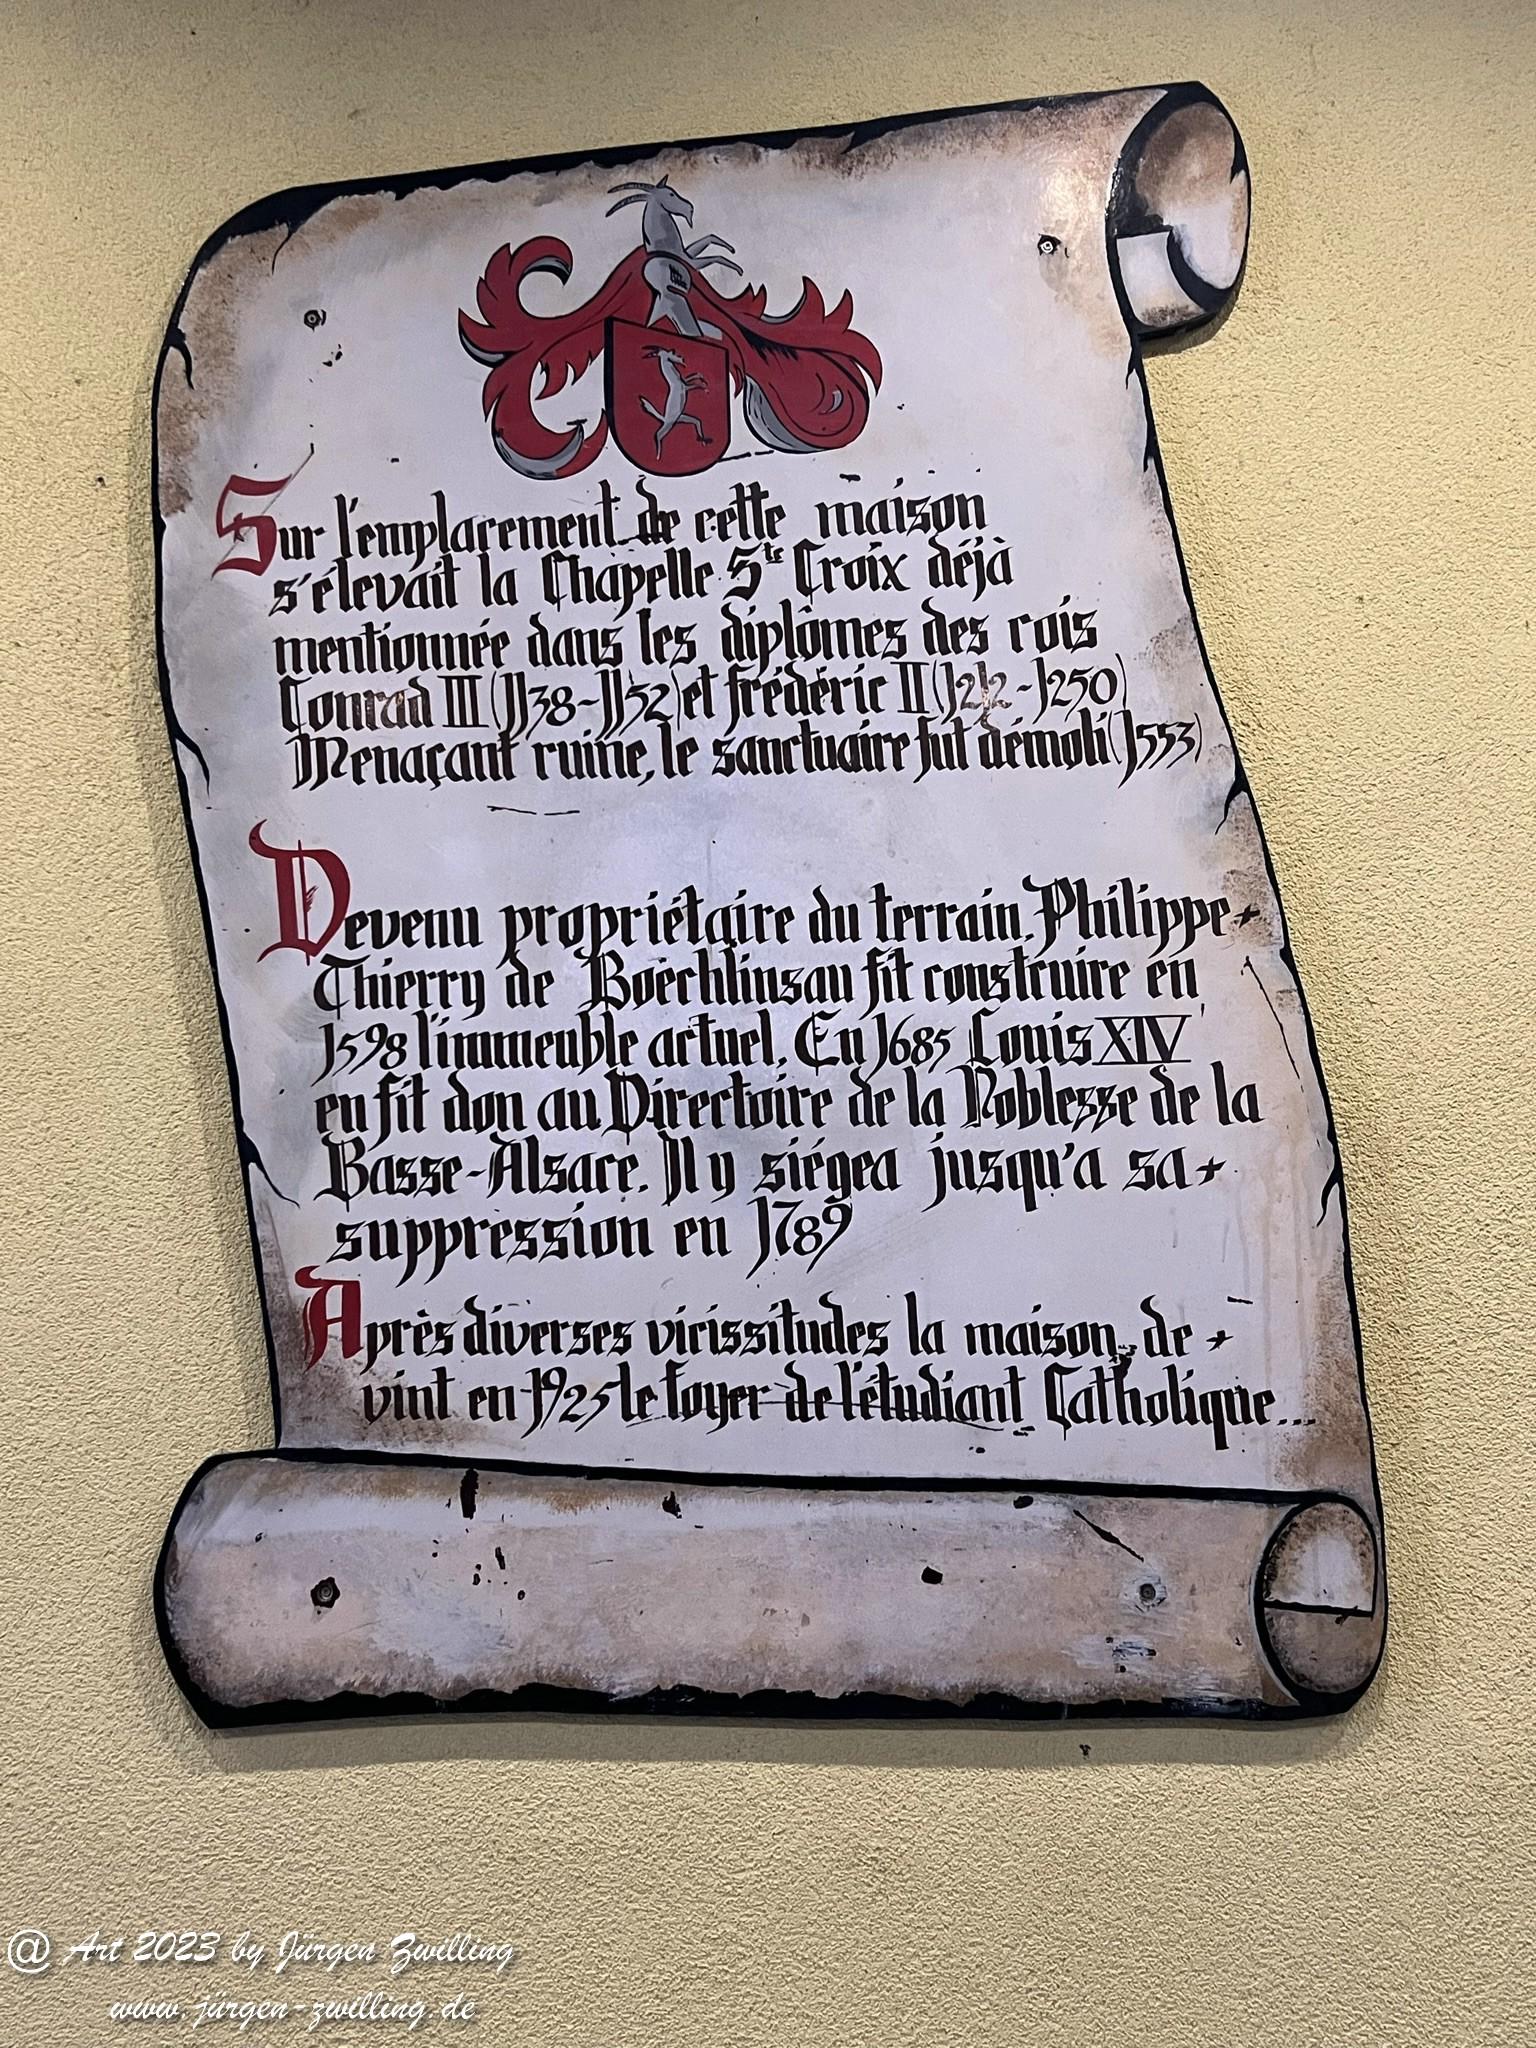 Sur l'emplacement de cette maison
s'élevait la Chapelle Ste Croix déjà
mentionnée dans les diplômes des rois
Conrad III (1138-1152) et frédéric II (1212-1250)
Menaçant ruine, le sanctuaire fut démoli (1553)
Devenu propriétaire du terrain, Philippe-
Thierry de Boëcklinsau fit construire en
1598 l'immeuble actuel. En 1685 Louis XIV
en fit don au Directoire de la Noblesse de la
Basse-Alsace. Il y siégea jusqu'a sa
suppression en 1789
Après diverses vicissitudes la maison de-
vint en 1925 le foyer de l'étudiant Catholique...
@ Art 2023 by Jürgen Zwilling
www.jürgen-zwilling.de